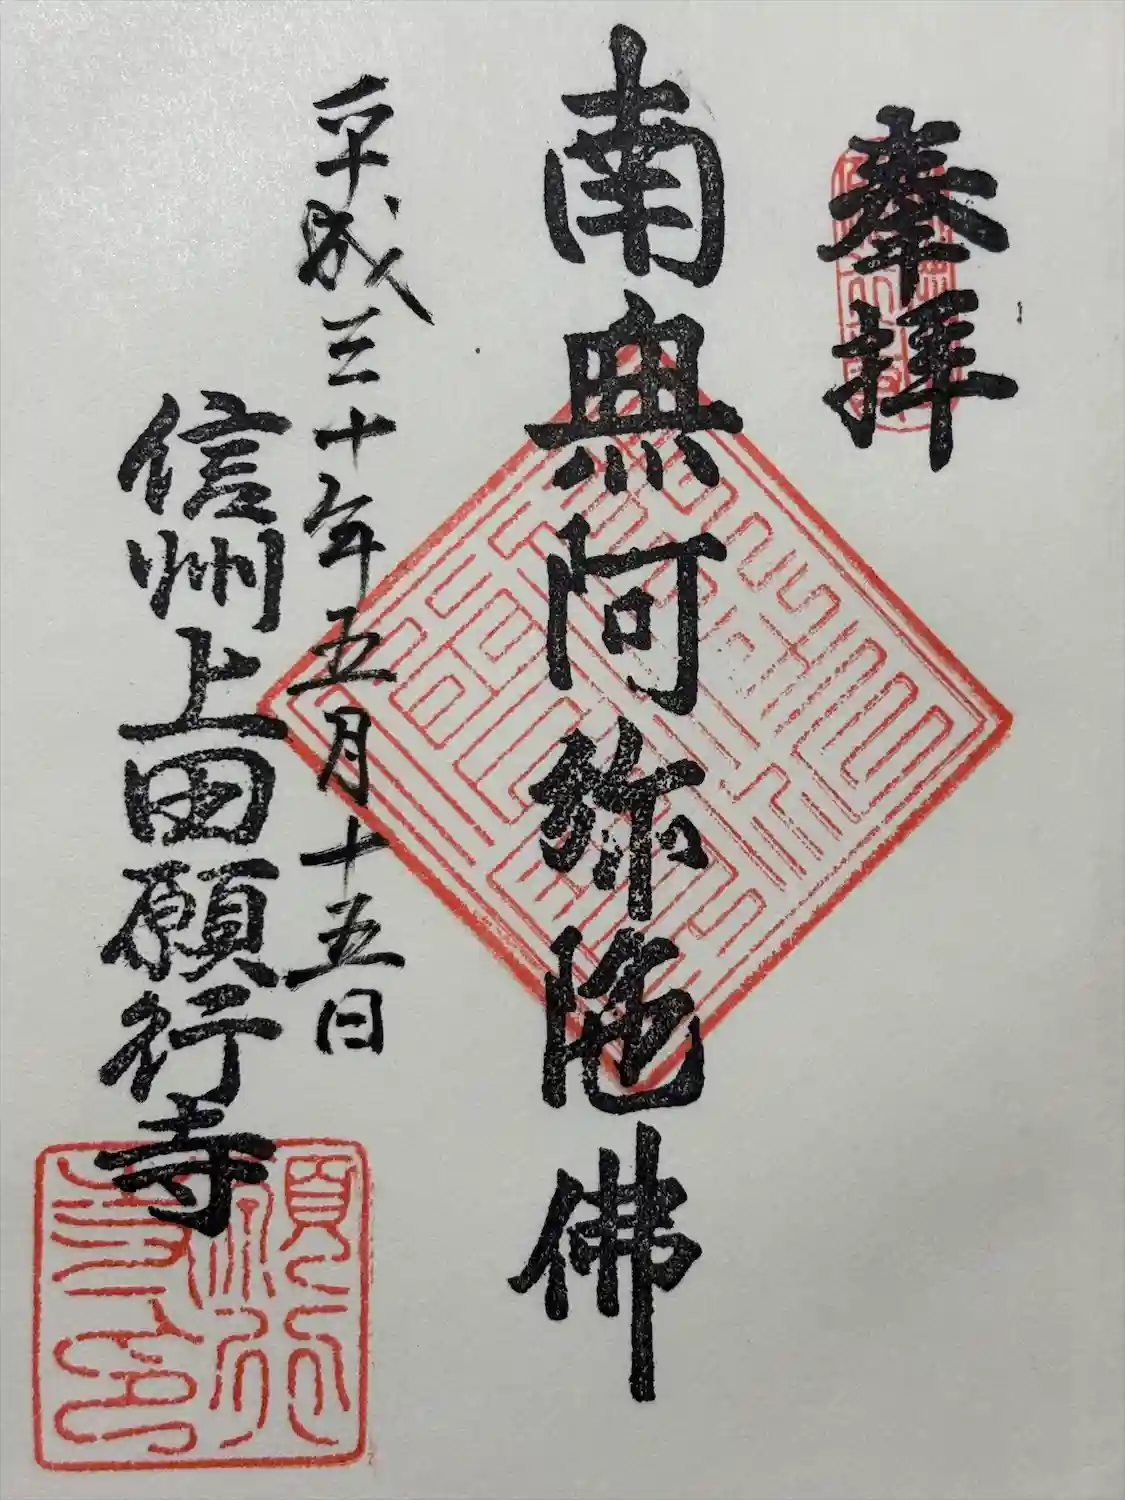 奉拝
南無阿弥陀佛
平成三十年五月十五日
信州上田願行寺
願行寺印